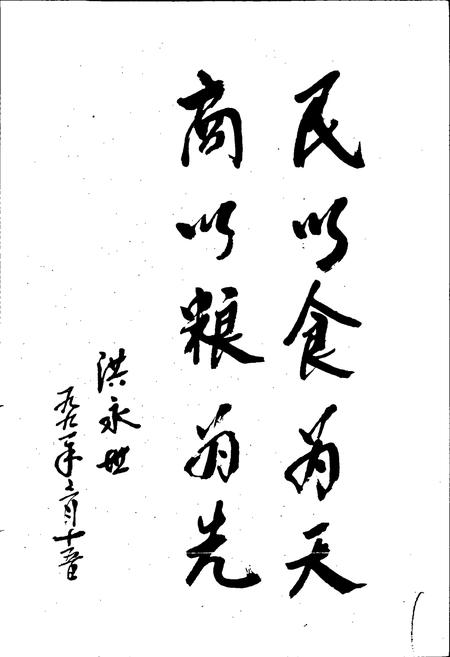 民以食为天
商以粮为先
洪永世
一九九一年六月十五日